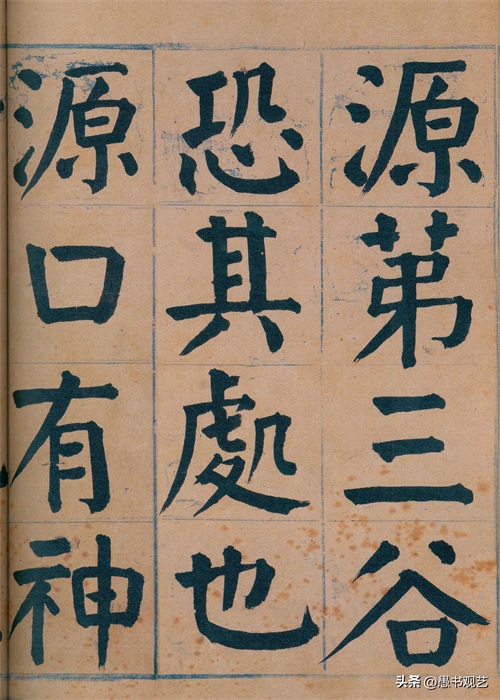 源第三谷
恐其處也
源口有神
头条 @愚书观艺